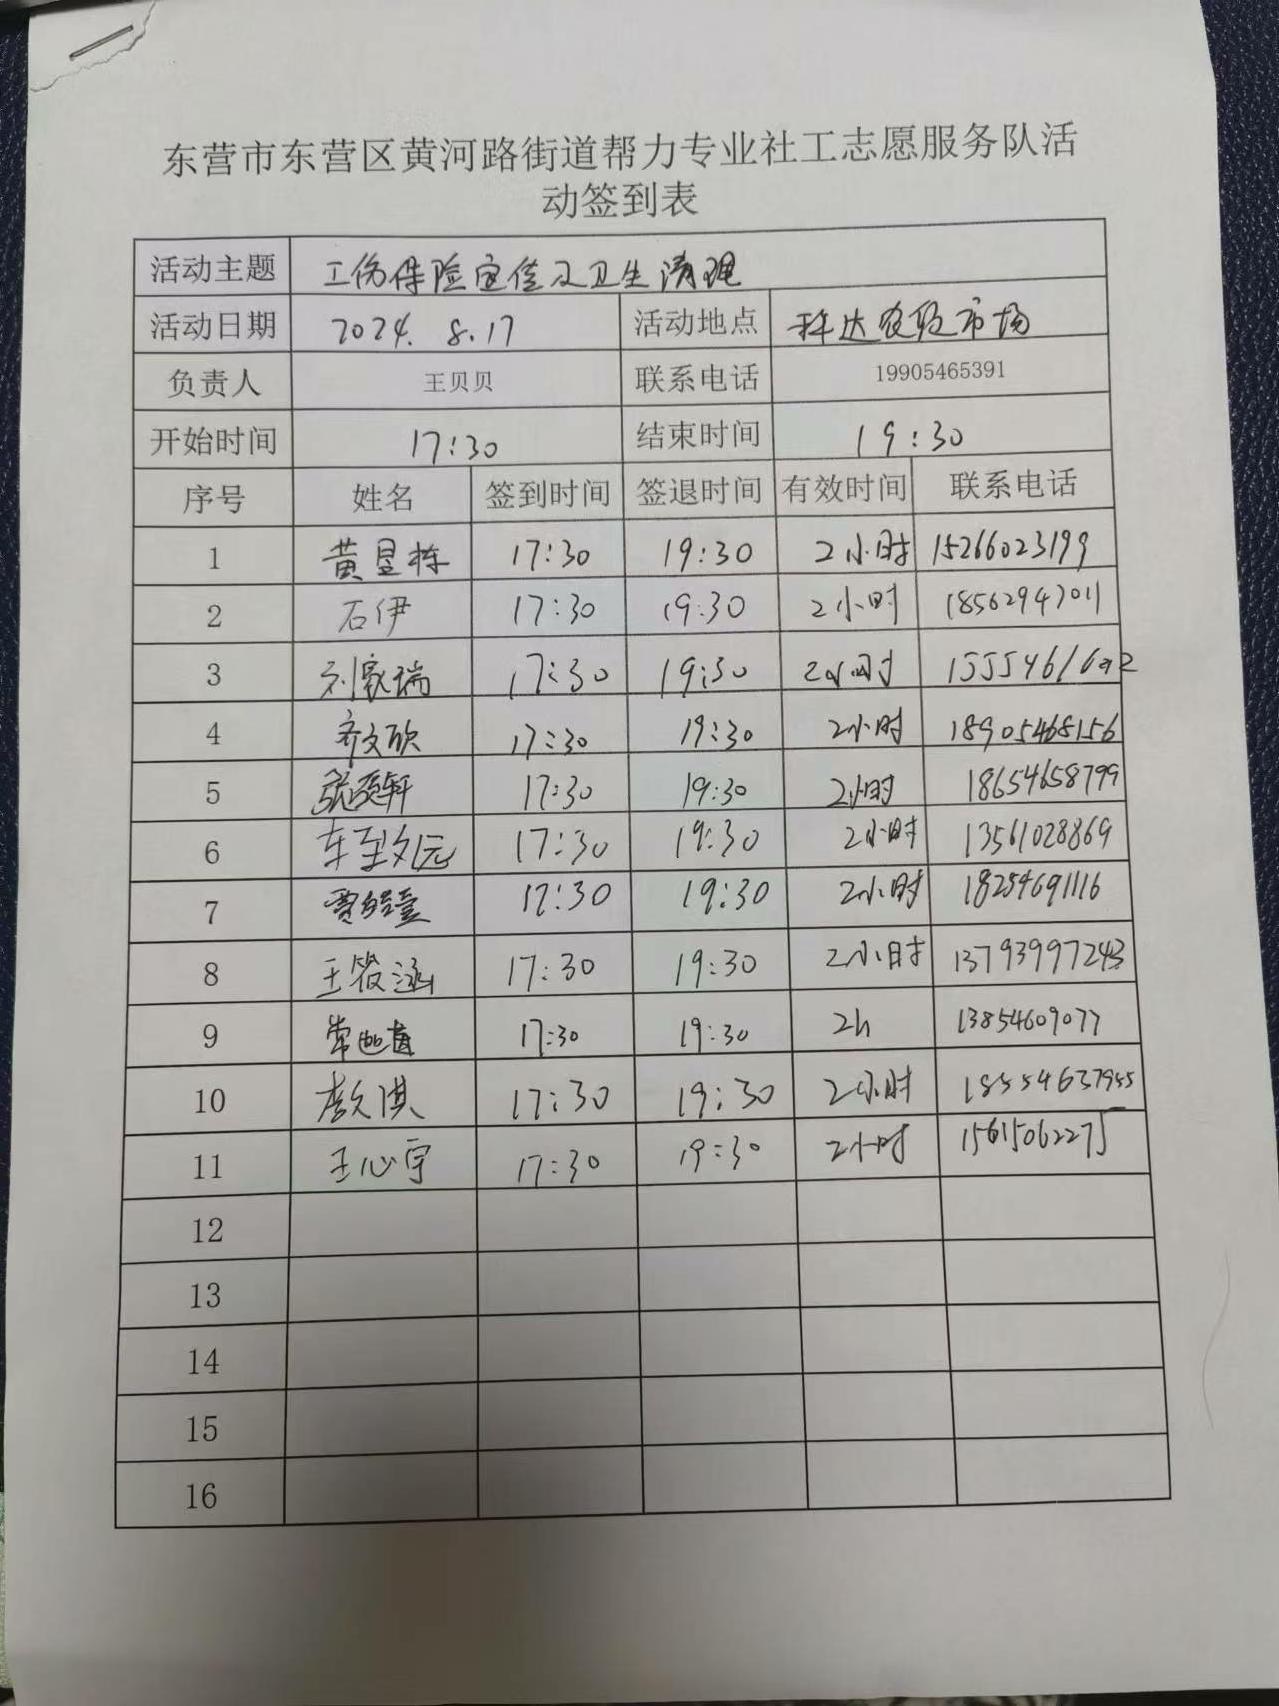 东营市东营区黄河路街道帮力专业社工志愿服务队活
动签到表
活动主题 工伤保险宣传及卫生清理
活动日期 2024. 8.17 活动地点 科达农贸市场
负责人 王贝贝 联系电话 19905465391
开始时间 17:30 结束时间 19:30
序号 姓名 签到时间 签退时间 有效时间 联系电话
1 黄昱栋 17:30 19:30 2小时 15266023199
2 石伊 17:30 19:30 2小时 18562947011
3 刘家瑞 17:30 19:30 2小时
4 齐文欣 17:30 19:30 2小时 18905468156
5 17:30 19:30 2小时 18654658799
6 车至文远 17:30 19:30 2小时 13561028869
7 17:30 19:30 2小时 18254691116
8 王筱涵 17:30 19:30 2小时 13793997243
9 17:30 19:30 2h 13854609077
10 17:30 19:30 2小时 18554637955
11 王心宇 17:30 19:30 2小时 15615062275
12
13
14
15
16